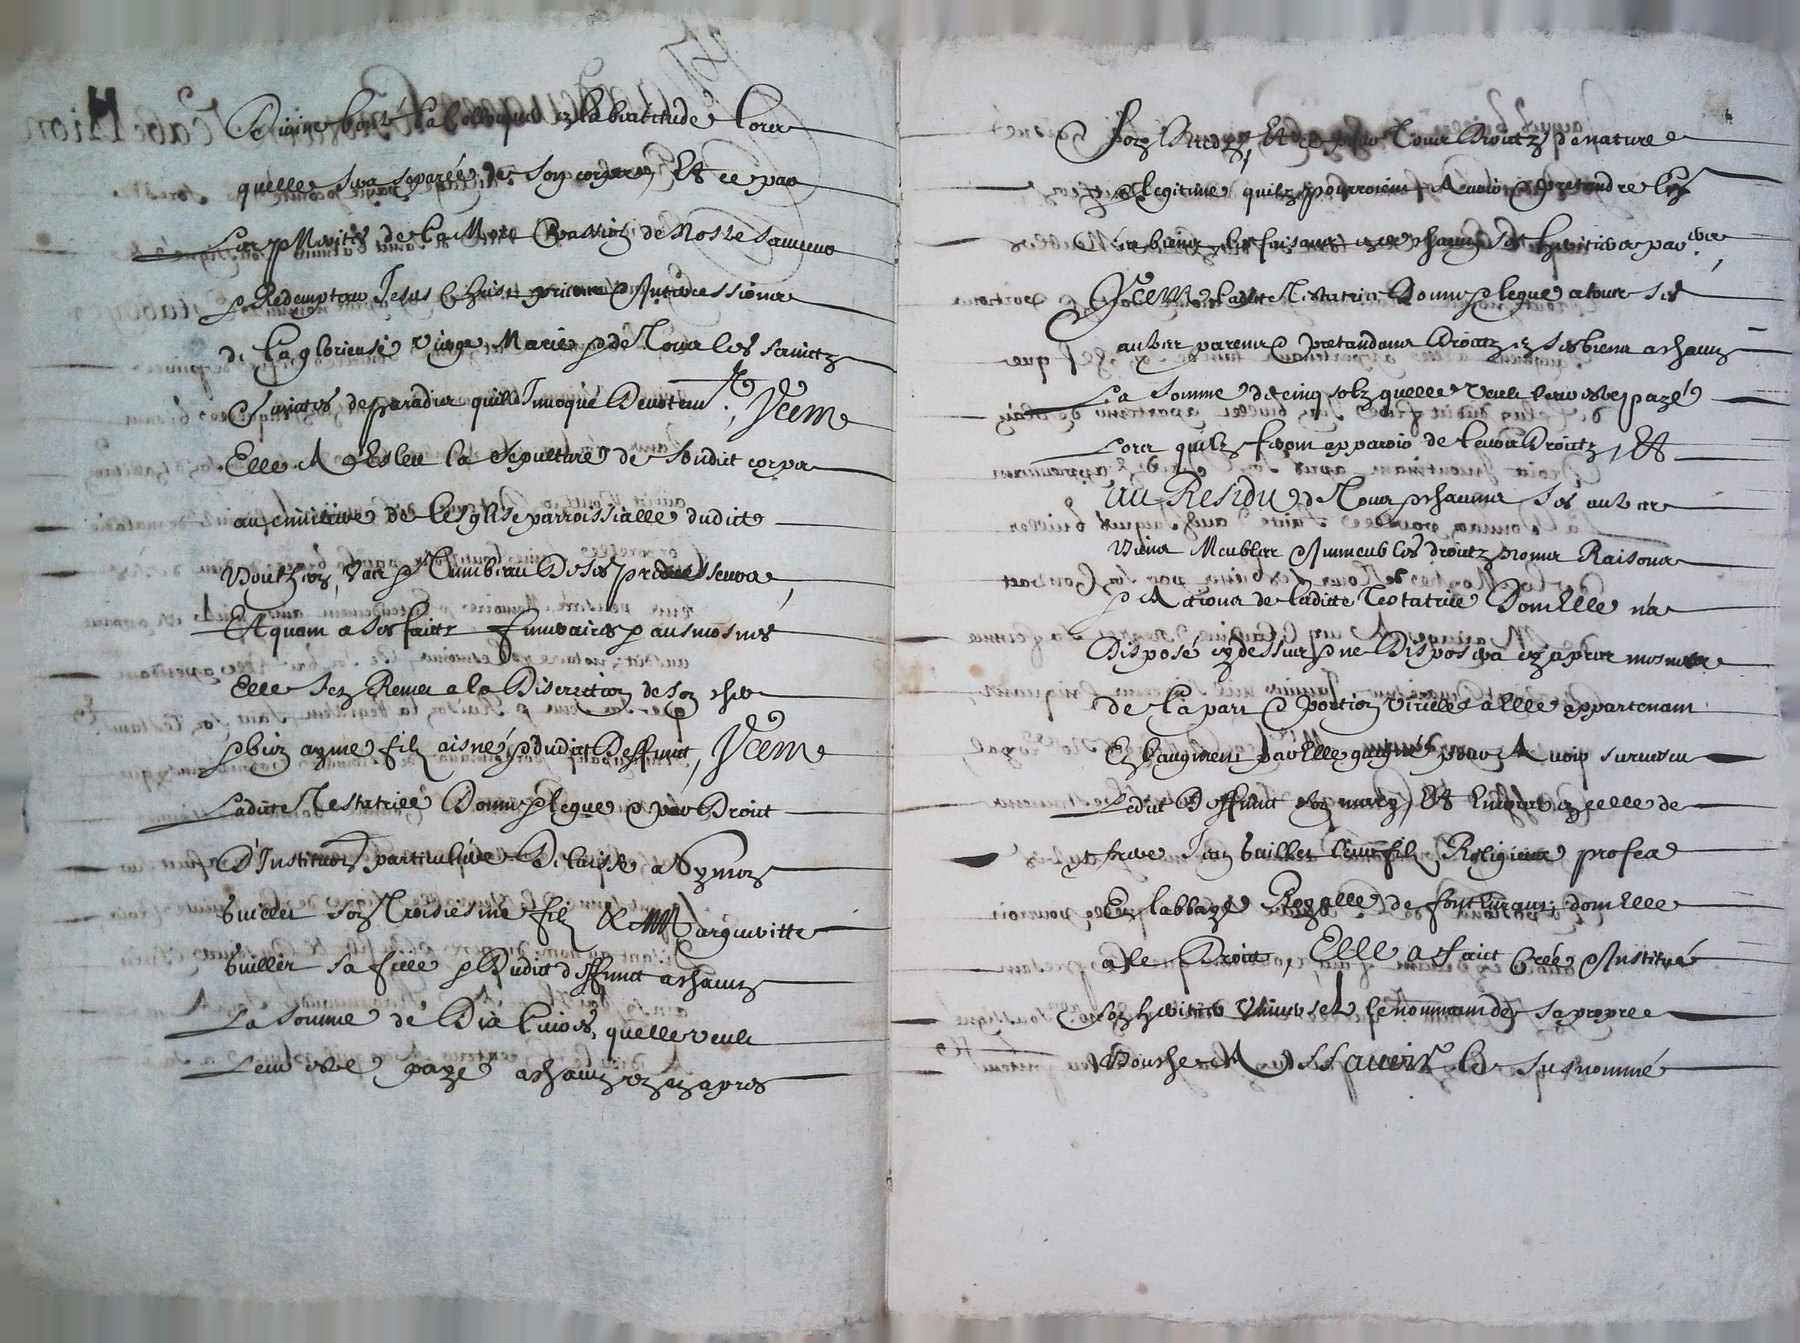 Divine bonté la colloquer en la béatitude lors
quelle sera separée de son corps, Et ce par
Les Merites de la Mort & Passion de Nostre Sauveur
& Redempteur Jesus Christ prieres & Intercessions
de la glorieuse Vierge Marie & de Tous les sainctz
& sainctes de paradis quelle Invoque devotem.t ; Item
Elle A Esleu la sépulture de sondict corps
au cimitiere de lesglise parroissialle dudict
& Tumbeau de ses predecesseurs,
Et quant a ses faictz funeraires & ausmosnes
Elle sen Remet a la Discretion de son cher
& bien aymé filz aisné & dudict Deffunct, Item
Ladicte Testatrice Donne & legue & par Droict
D'Institution particuliere Delaisse a Symon
buillet son Troisiesme filz & A Margueritte
buillet sa fille & dudict deffunct a chascun
La somme de Dix livres, quelle veult
Leur estre payé a chascun en apres
son Deceds, Et ce pour Tous Droictz de nature
& legitime quilz pourroient Avoir & pretendre en
ses biens les faisant en ce chascun ses heritiers par.ers,
Item ladicte Testatrice Donne & legue a tous ses
aultres parens & pretendans Droictz en ses biens a chascun
La somme de cinq solz quelle veult leur estre payé
Lors quilz feront apparoir de leurs Droictz, Et
au Residu de Tous & chascuns ses aultres
biens Meubles & Immeubles droictz noms Raisons
& Actions de ladicte Testatrice Dont Elle n'a
Disposé cy dessus & ne Disposera cy apres mesmes
de la part & portion virille a Elle appartenant
En laugment par Elle gaigné pour Avoir survescu
Ledict Deffunct son mary, Et Encores en celle de
frere Jean buillet leur filz Religieux profes
En labbaye Royalle de dont Elle
a le Droict, Elle a faict Créé & Institué
son heritier Universel le nommant de sa propre
Bouche A Scavoir le susnommé